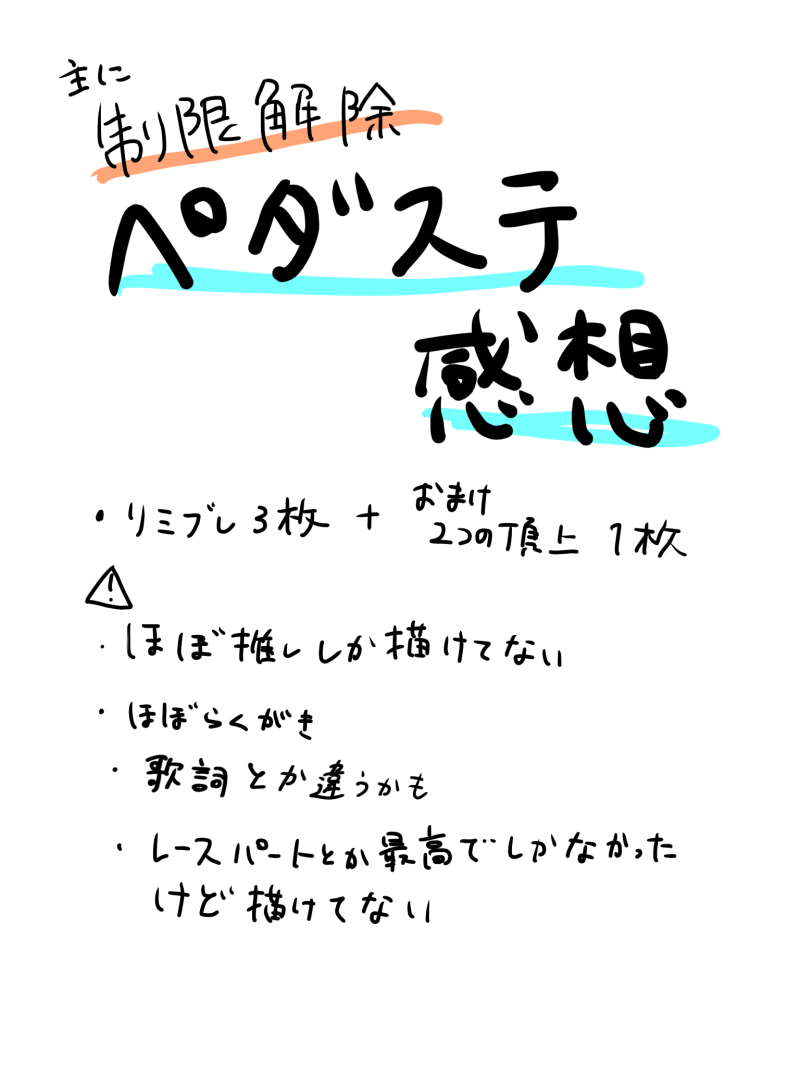 主に
制限解除
ペダステ
感想
・リミブレ3枚 + おまけ 2つの頂上 1枚
⚠
・ほぼ推ししか描けてない
・ほぼらくがき
・歌詞とか違うかも
・レースパートとか最高でしかなかった
けど描けてない